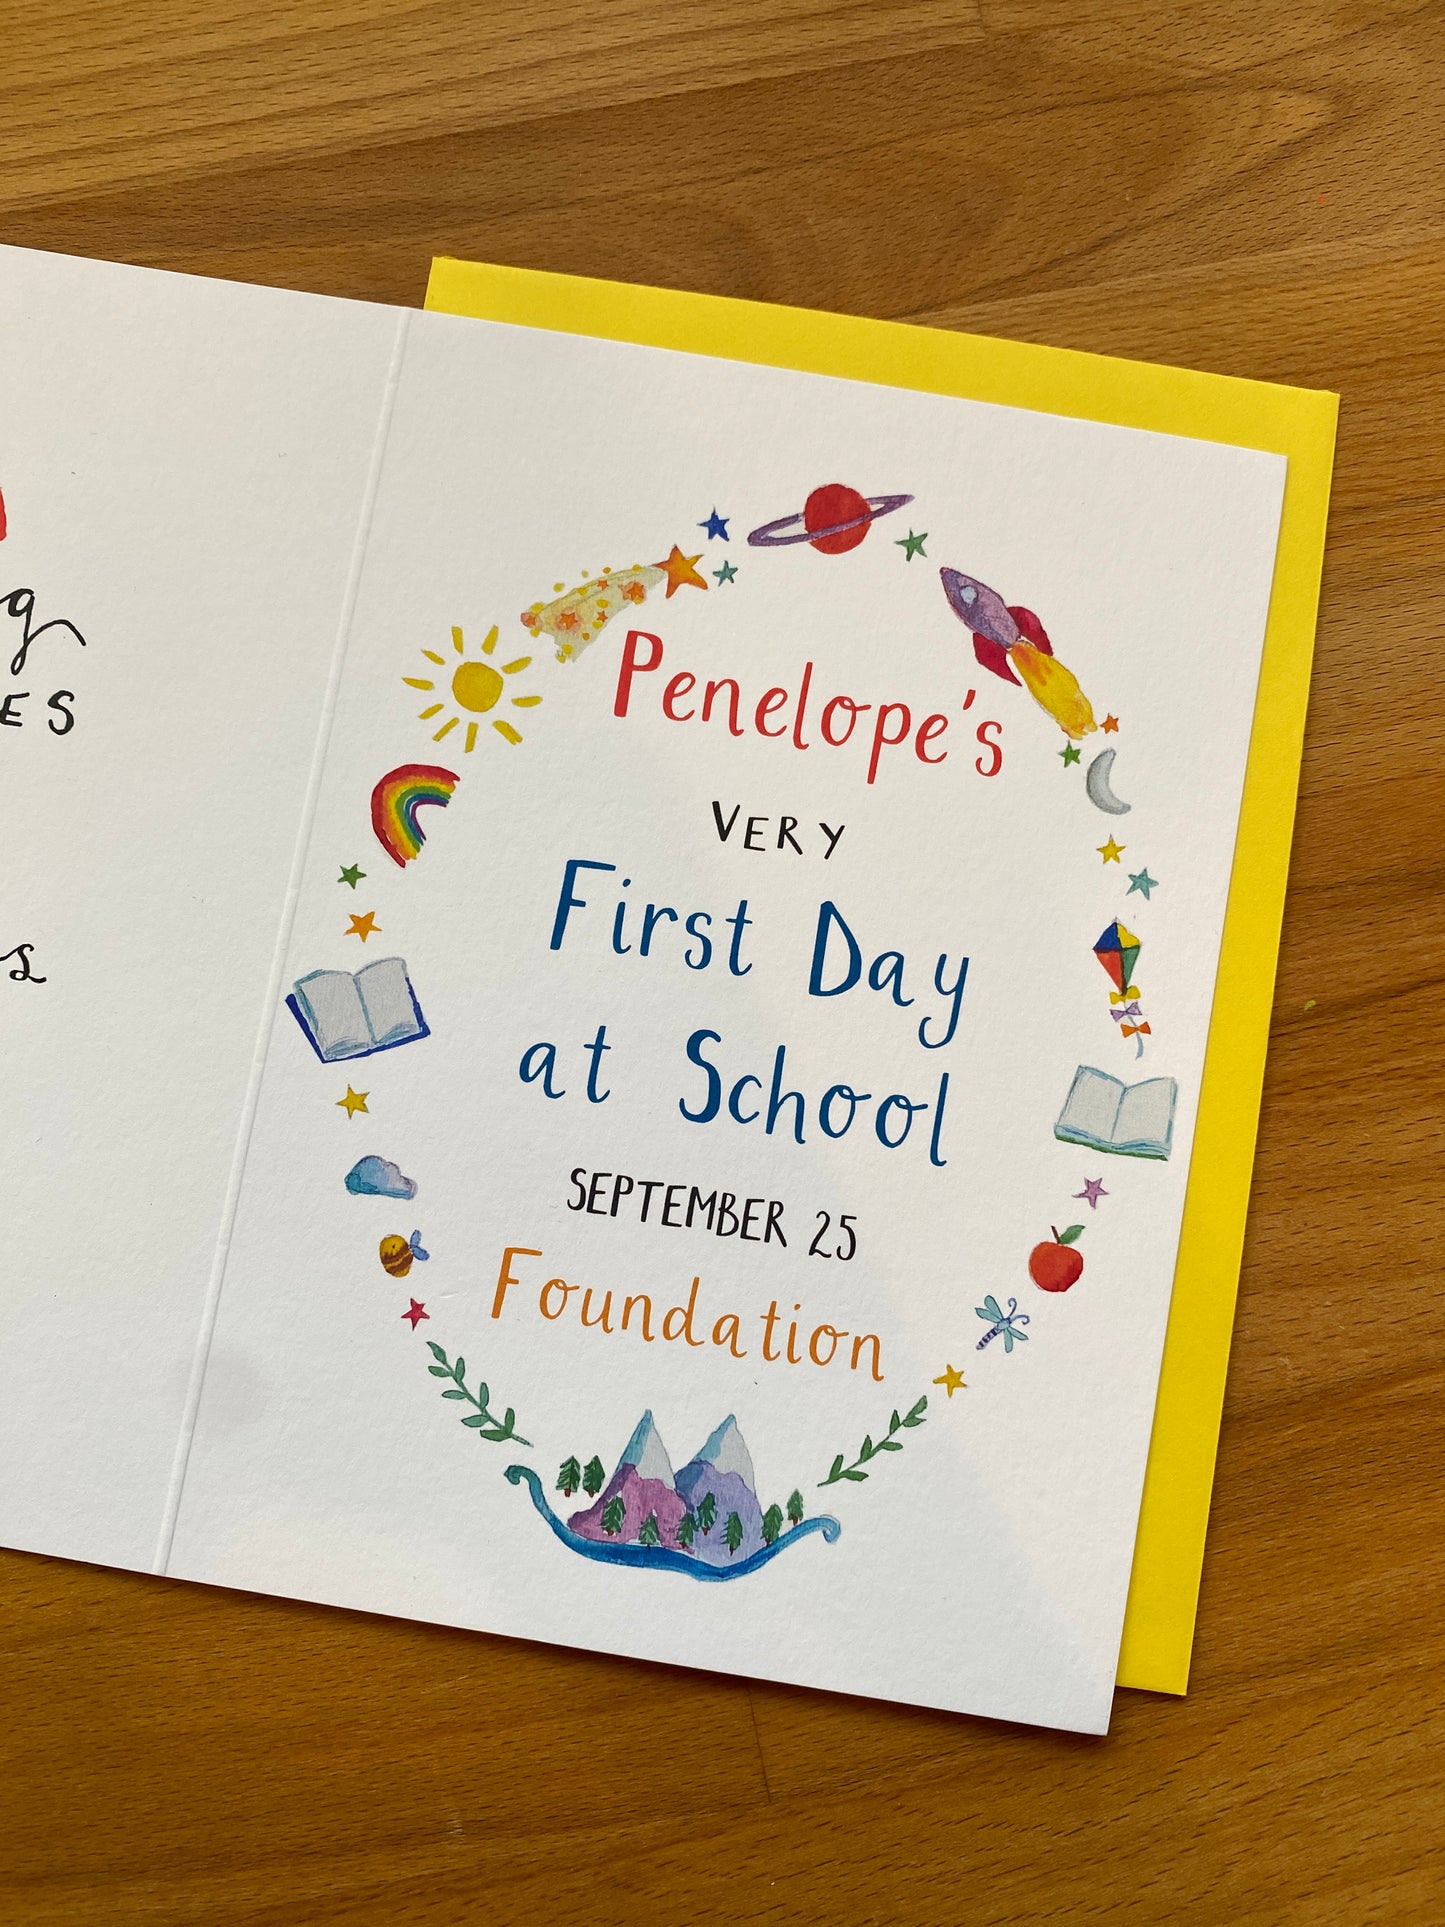 Penelope's
VERY
First Day
at School
SEPTEMBER 25
Foundation